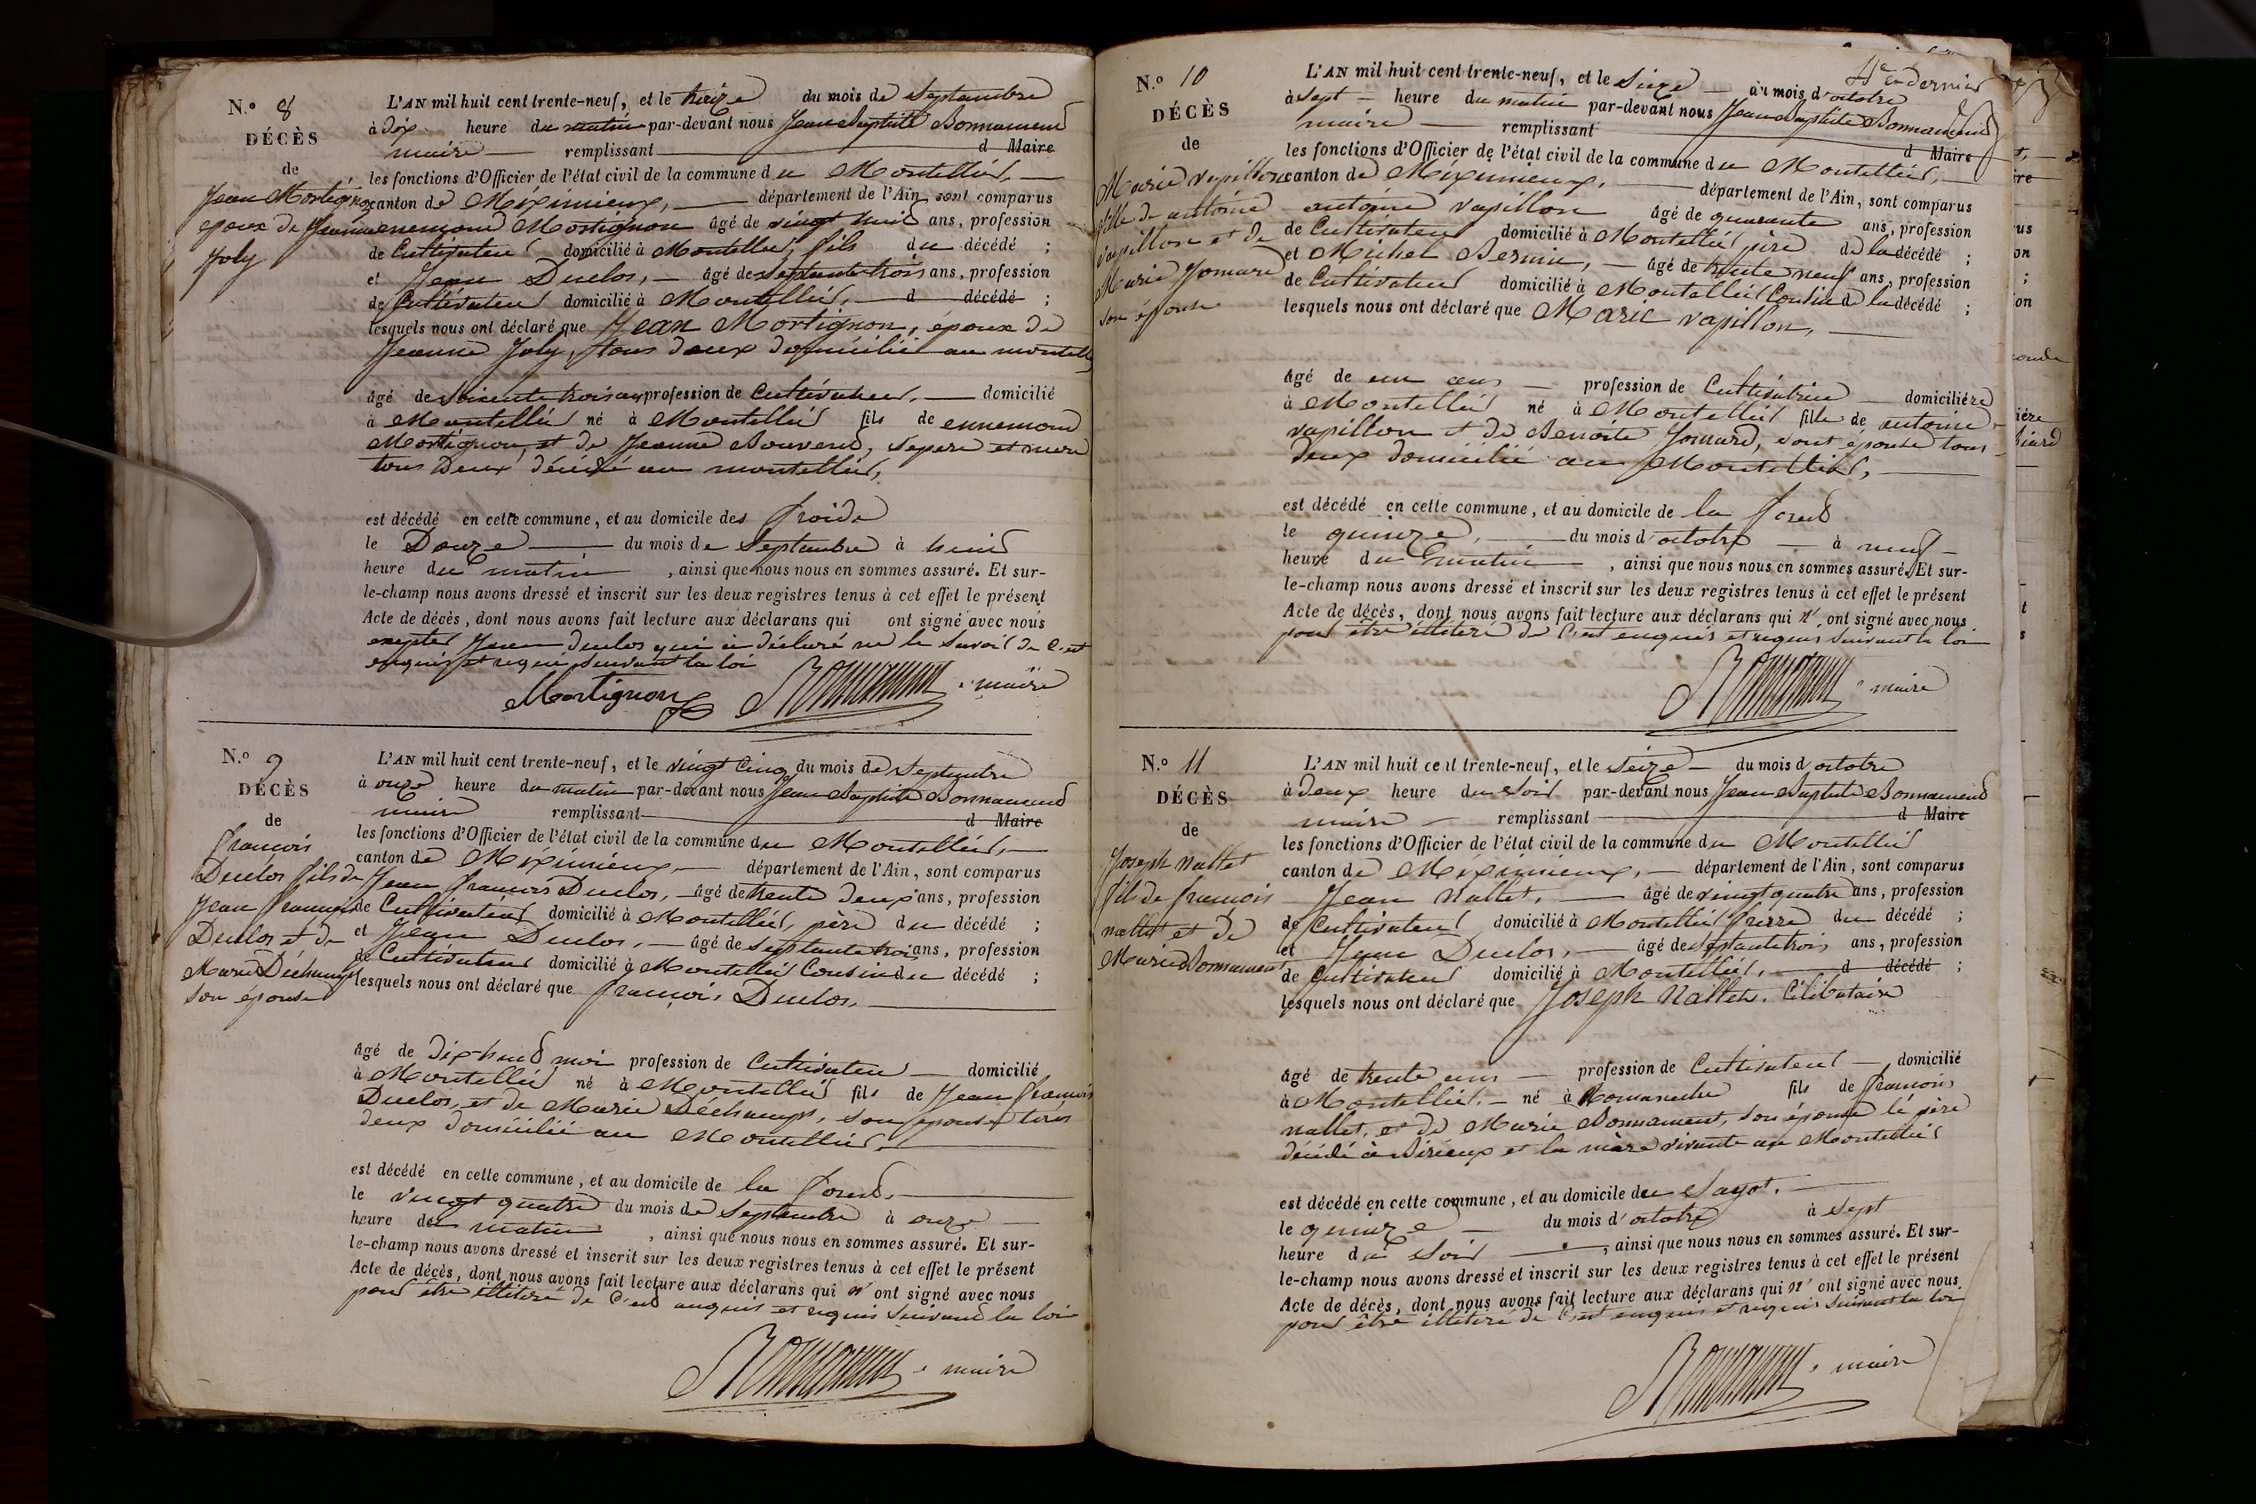 N.o 8
DÉCÈS
de
Jean Mortignon
époux de Jeanne
Joly
L'AN mil huit cent trente-neuf, et le treize du mois de Septembre
à dix heure du matin par-devant nous Jean Baptiste Bonnamend
maire remplissant d Maire
les fonctions d'Officier de l'état civil de la commune du Montellier,
canton de Méximieux, département de l'Ain, sont comparus
ennemond Mortignon âgé de vingt huit ans, profession
de Cultivateur domicilié à Montellier fils du décédé ;
et Jean Duclos, âgé de septante trois ans, profession
de Cultivateur domicilié à Montellier, d décédé ;
lesquels nous ont déclaré que Jean Mortignon, époux de
Jeanne Joly, tous deux domicilié au montell
âgé de soixente trois ans profession de Cultivateur, domicilié
à Montellier né à Montellier fils de ennemond
Mortignon, et de Jeanne Bouvend, sepere et mere
tous Deux décédé au montellier,
est décédé en cette commune, et au domicile des froide
le Douze du mois de Septembre à huit
heure du matin, ainsi que nous nous en sommes assuré. Et sur-
le-champ nous avons dressé et inscrit sur les deux registres tenus à cet effet le présent
Acte de décès, dont nous avons fait lecture aux déclarans qui ont signé avec nous
excepter Jean duclos qui a déclaré ne le savoir de c'est
enquis et requis suivant la loi
Mortignon Bonnamend maire
N.o 9
DÉCÈS
de
françois
Duclos fils de
Jean françois
Duclos et de
Marie Déchamps
son épouse
L'AN mil huit cent trente-neuf, et le vingt cinq du mois de Septembre
à onze heure du matin par-devant nous Jean Baptiste Bonnamend
maire remplissant d Maire
les fonctions d'Officier de l'état civil de la commune du Montellier,
canton de Méximieux, département de l'Ain, sont comparus
Jean françois Duclos, âgé de trente deux ans, profession
de Cultivateur domicilié à Montellier, père du décédé ;
et Jean Duclos, âgé de septante trois ans, profession
de Cultivateur domicilié à Montellier Cousin du décédé ;
lesquels nous ont déclaré que françois Duclos,
âgé de dix-huit moi profession de Cultivateur domicilié
à Montellier né à Montellier fils de Jean françois
Duclos, et de Marie Dechamps, son épouse tous
deux domicilié au Montellier,
est décédé en cette commune, et au domicile de la font,
le vingt quatre du mois de Septembre à onze
heure du matin, ainsi que nous nous en sommes assuré. Et sur-
le-champ nous avons dressé et inscrit sur les deux registres tenus à cet effet le présent
Acte de décès, dont nous avons fait lecture aux déclarans qui n' ont signé avec nous
pour être illitéré de c'est enquis et requis suivant la loi
Bonnamend maire
4e en dernier
N.o 10
DÉCÈS
de
Marie vapillon
fille de antoine
vapillon et de
Marie Jomard
son épouse
L'AN mil huit cent trente-neuf, et le Seize du mois d'octobre
à Sept heure du matin par-devant nous Jean Baptiste Bonnamend
maire remplissant d Maire
les fonctions d'Officier de l'état civil de la commune du Montellier,
canton de Méximieux, département de l'Ain, sont comparus
antoine vapillon âgé de quarante ans, profession
de Cultivateur domicilié à Montellier père de la décédé ;
et Michel Bernin, âgé de trente neuf ans, profession
de Cultivateur domicilié à Montellier Cousin d la décédé ;
lesquels nous ont déclaré que Marie vapillon,
âgé de un ans profession de Cultivatrice domiciliére
à Montellier né à Montellier fille de antoine
vapillon et de Benoite Jomard, sont épouse tous
deux domicilié au Montellier,
est décédé en cette commune, et au domicile de la font
le quinze, du mois d'octobre à neuf
heure du matin, ainsi que nous nous en sommes assuré. Et sur-
le-champ nous avons dressé et inscrit sur les deux registres tenus à cet effet le présent
Acte de décès, dont nous avons fait lecture aux déclarans qui n' ont signé avec nous
pour être illitéré de c'est enquis et requis suivant la loi
Bonnamend maire
N.o 11
DÉCÈS
de
Joseph Nallet
fils de françois
nallet et de
Marie Bonnament
L'AN mil huit cent trente-neuf, et le seize du mois d'octobre
à deux heure du soir par-devant nous Jean Baptiste Bonnamend
maire remplissant d Maire
les fonctions d'Officier de l'état civil de la commune du Montellier
canton de Méximieux, département de l'Ain, sont comparus
Jean Nallet, âgé de vingt quatre ans, profession
de Cultivateur domicilié à Montellier frerre du décédé ;
et Jean Duclos, âgé de septante trois ans, profession
de Cultivateur domicilié à Montellier, d décédé ;
lesquels nous ont déclaré que Joseph Nallet, Célibataire
âgé de trente uns profession de Cultivateur domicilié
à Montellier, né à Romaneche fils de françois
nallet, et de Marie Bonnament, son épouse lé père
décédé à Birieux et la mère vivante au Montellier
est décédé en cette commune, et au domicile du Sayot.
le quinze du mois d'octobre à sept
heure du soir, ainsi que nous nous en sommes assuré. Et sur-
le-champ nous avons dressé et inscrit sur les deux registres tenus à cet effet le présent
Acte de décès, dont nous avons fait lecture aux déclarans qui n' ont signé avec nous
pour être illitéré de c'est enquis et requis suivant la loi
Bonnamend maire